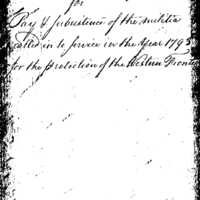 for
Pay & Subsistence of the militia
called in to service in the Year 179
for the protection of the Western Frontie